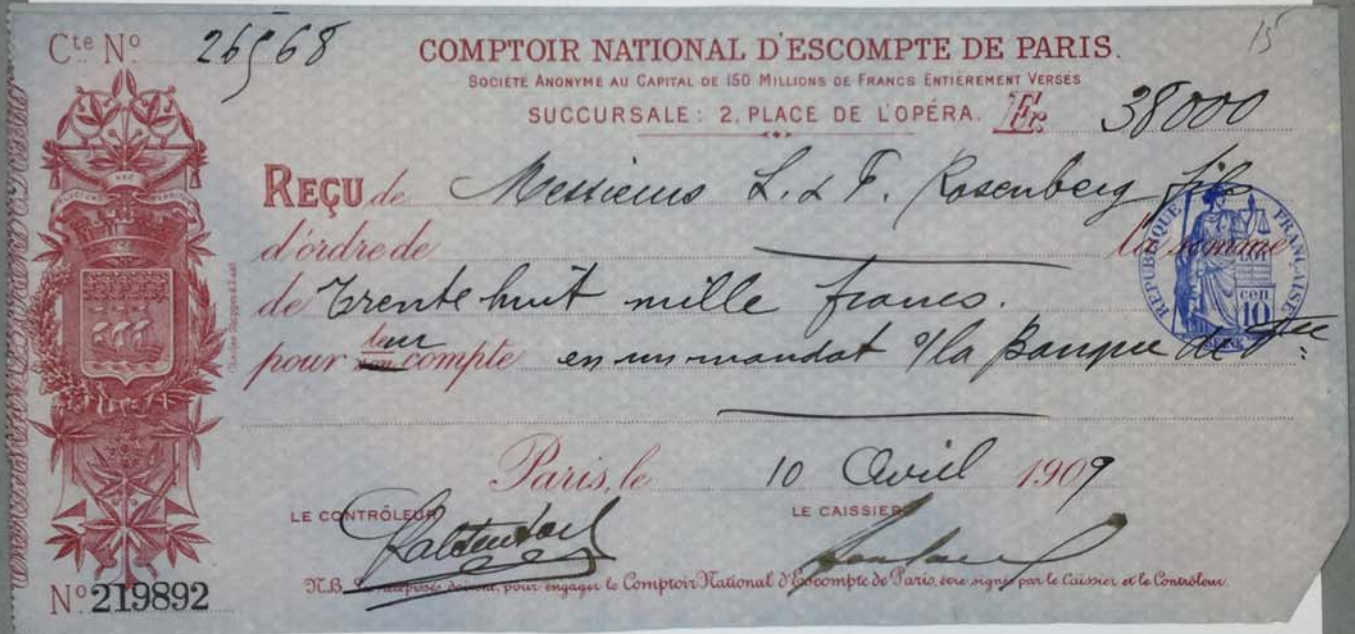 Cte No 26568 COMPTOIR NATIONAL D'ESCOMPTE DE PARIS. 15
SOCIÉTÉ ANONYME AU CAPITAL DE 150 MILLIONS DE FRANCS ENTIÈREMENT VERSÉS
SUCCURSALE: 2, PLACE DE L'OPÉRA. Fr. 38000
REÇU de Messieurs L. & F. Rosenberg fils
d'ordre de la somme
de Trente huit mille francs.
pour leur compte en un mandat s/la Banque de Fce
Paris, le 10 Avril 1909
LE CONTRÔLEUR LE CAISSIER
N.B. Les récépissés doivent, pour engager le Comptoir National d'Escompte de Paris, être signés par le Caissier et le Contrôleur.
No 219892
RÉPUBLIQUE FRANÇAISE
10 cen
SEINE